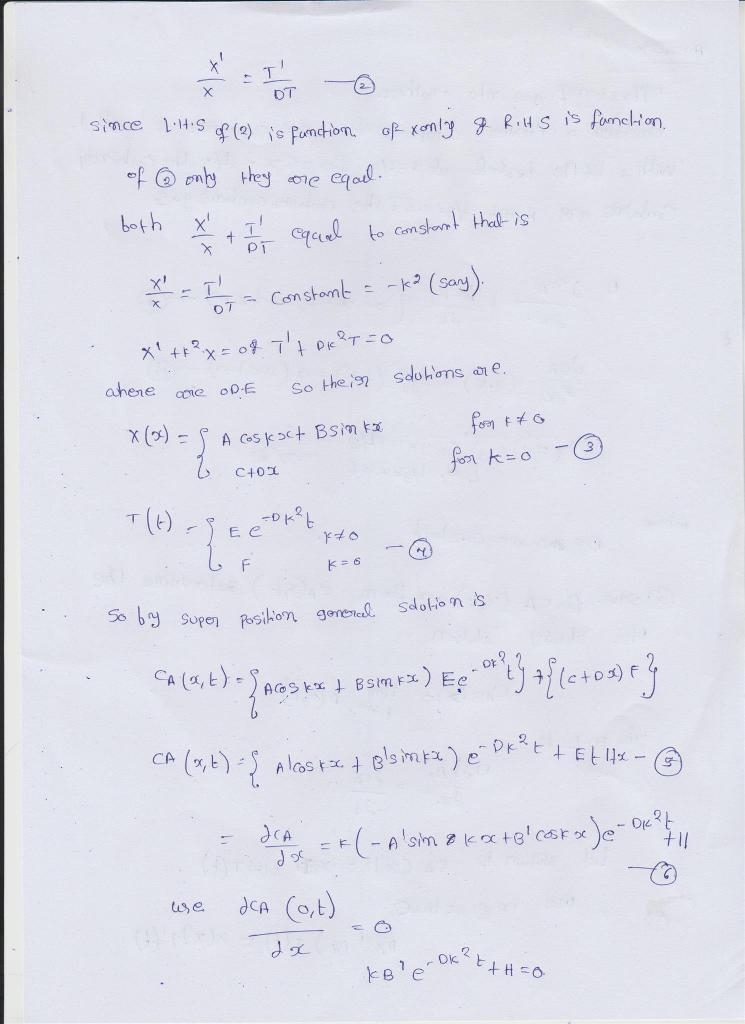 X'/X = T'/DT — ②
since L.H.S of (2) is function of x only & R.H.S is function
of ② only they are equal.
both X'/X + T'/DT equal to constant that is
X'/X = T'/DT = constant = -k² (say).
X' + k²X = 0 & T' + Dk²T = 0
where are ODE so their solutions are.
X(x) = { A cos kx + B sin kx for k≠0
C+Dx for k=0 — ③
T(t) = { E e^-Dk²t k≠0
F k=0 — ④
So by super position general solution is
CA(x,t) = {A cos kx + B sin kx) E e^-Dk²t} + {(C+Dx) F}
CA(x,t) = { A' cos kx + B' sin kx) e^-Dk²t + E + Hx — ⑤
= ∂CA/∂x = k(-A' sin kx + B' cos kx) e^-Dk²t + H
— ⑥
use ∂CA (0,t)/∂x = 0
kB' e^-Dk²t + H = 0